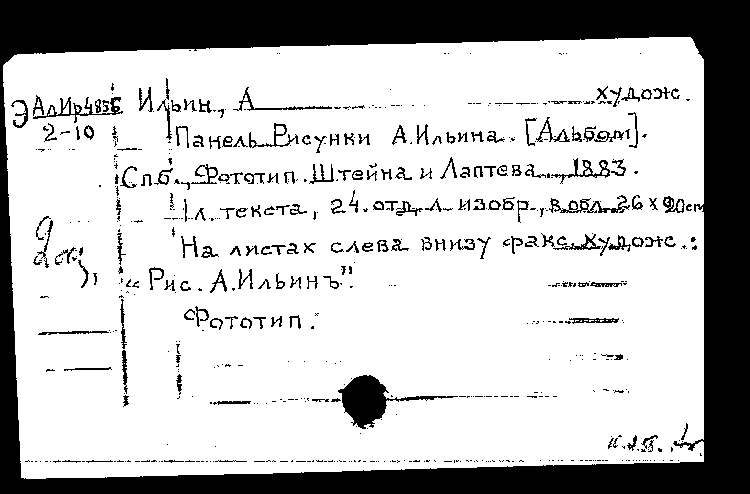 Э АлИр4856
2-10
Ильин, А худож.
Панель Рисунки А. Ильина. [Альбом].
Спб., Фототип. Штейна и Лаптева, 1883.
1 л. текста, 24 отд. л. изобр., в обл. 26 x 20 cm
На листах слева внизу факс. худож.:
„Рис. А. Ильинъ".
Фототип.
2 экз,